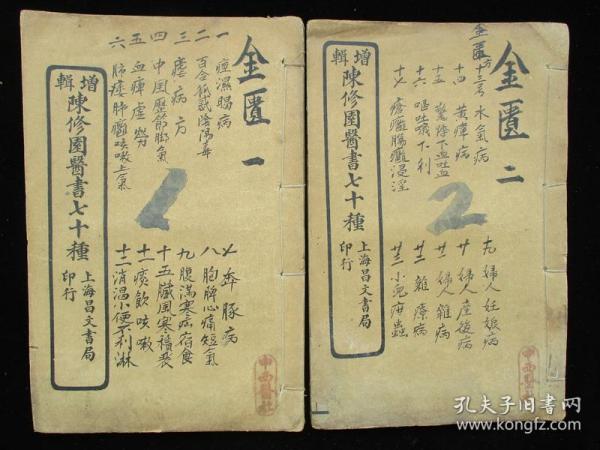 金匱 一
一 痙濕暍病
二 百合狐惑陰陽毒
三 瘧病方
四 中風歷節脚氣
五 血痺虛勞
六 肺痿肺癰咳嗽上氣
七 奔豚病
八 胸脾心痛短氣
九 腹滿寒病宿食
十 五臟風寒積聚
十一 痰飲咳嗽
十二 消渴小便不利淋
增輯陳修園醫書七十種
上海昌文書局印行
1
中西醫社
金匱 二
金匱方
十三号 水氣病
十四 黃癉病
十五 驚悸下血
十六 嘔吐噦下利
十七 瘡癰腸癰浸淫
十九 婦人妊娠病
廿 婦人產後病
廿一 婦人雜病
廿二 雜療病
廿三 小兒疳蟲
增輯陳修園醫書七十種
上海昌文書局印行
2
中西醫
孔夫子旧书网
www.kongfz.com